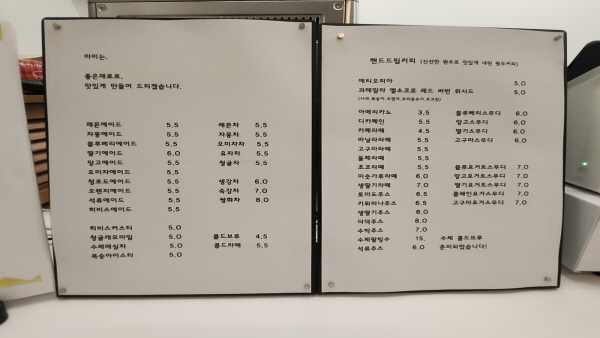 바미는.
좋은재료로.
맛있게 만들어 드리겠습니다.
레몬에이드 5,5 레몬차 5,5
자몽에이드 5,5 자몽차 5,5
블루베리에이드 5,5 오미자차 5,5
딸기에이드 6,0 유자차 5,5
망고에이드 5,5 청귤차 5,5
오미자에이드 5,5
청포도에이드 5,5 생강차 6,0
오렌지에이드 5,5 7,0
석류에이드 5,5 쌍화차 8,0
히비스에이드 5,5
히비스커스티 5,0
청귤캐모마일 5,0 콜드브루 4,5
수제매실차 5,0 콜드라떼 5,5
복숭아아이스티 5,0
핸드드립커피 (신선한 원두로 맛있게 내린 원두커피)
에티오피아 5,0
과테말라 엘소코로 레드 버번 워시드 5,0
아메리카노 3,5 블루베리스무디 6,0
디카페인 5,5 망고스무디 6,0
카페라떼 4,5 딸기스무디 6,0
바닐라라떼 5,5 고구마스무디 6,0
고구마라떼 5,5
돌체라떼 5,5
초코라떼 5,5 블루요거트스무디 7,0
미숫가루라떼 6,0 망고요거트스무디 7,0
생딸기라떼 7,0 딸기요거트스무디 7,0
토마토주스 6,5 플레인요거스무디 7,0
키위바나주스 6,5 고구마요거스무디 7,0
생딸기주스 8,0
더덕주스 8,0
수박주스 7,0
수제팥빙수 15, 수제 콜드브루
석류주스 6,0 준비되었습니다!